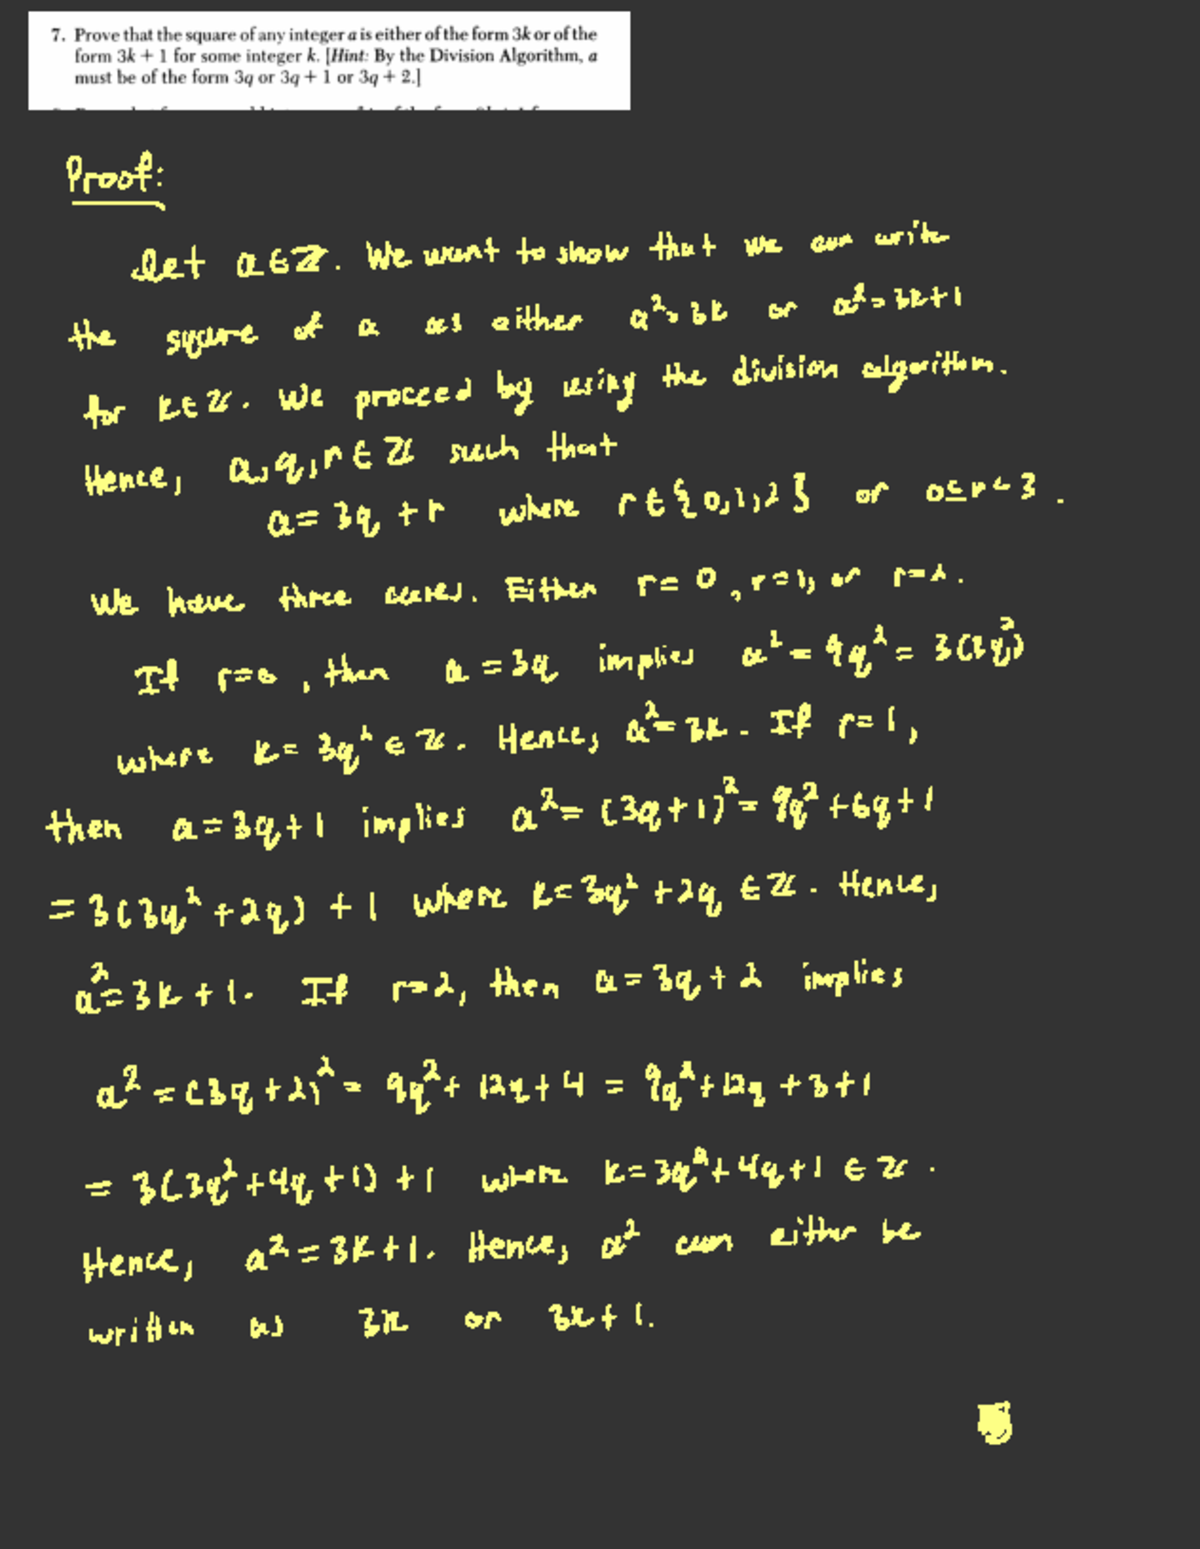 7. Prove that the square of any integer a is either of the form 3k or of the
form 3k + 1 for some integer k. [Hint: By the Division Algorithm, a
must be of the form 3q or 3q + 1 or 3q + 2.]
Proof:
Let a∈ℤ. We want to show that we can write
the square of a as either a²=3k or a²=3k+1
for k∈ℤ. We proceed by using the division algorithm.
Hence, a,q,r∈ℤ such that
a=3q+r where r∈{0,1,2} or 0≤r<3.
We have three cases. Either r=0, r=1, or r=2.
If r=0, then a=3q implies a²=9q²=3(3q²)
where k=3q²∈ℤ. Hence, a²=3k. If r=1,
then a=3q+1 implies a²=(3q+1)²=9q²+6q+1
=3(3q²+2q)+1 where k=3q²+2q∈ℤ. Hence,
a²=3k+1. If r=2, then a=3q+2 implies
a²=(3q+2)²=9q²+12q+4=9q²+12q+3+1
=3(3q²+4q+1)+1 where k=3q²+4q+1∈ℤ.
Hence, a²=3k+1. Hence, a² can either be
written as 3k or 3k+1.